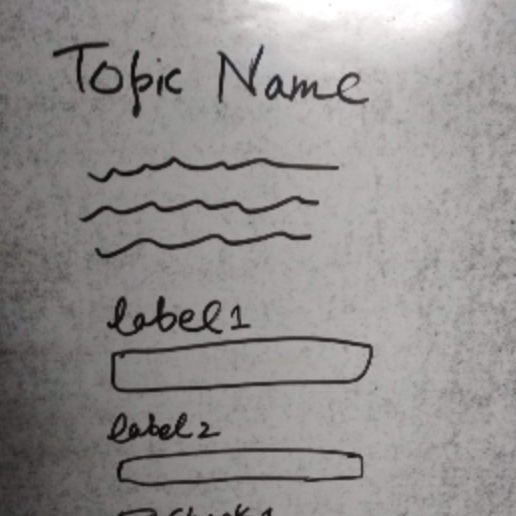 Topic Name
label1
label2